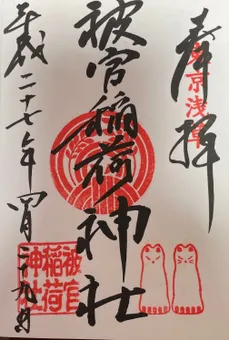 奉拝
東京浅草
被官稲荷神社
平成二十七年四月二十九日
被官
稲荷
神社